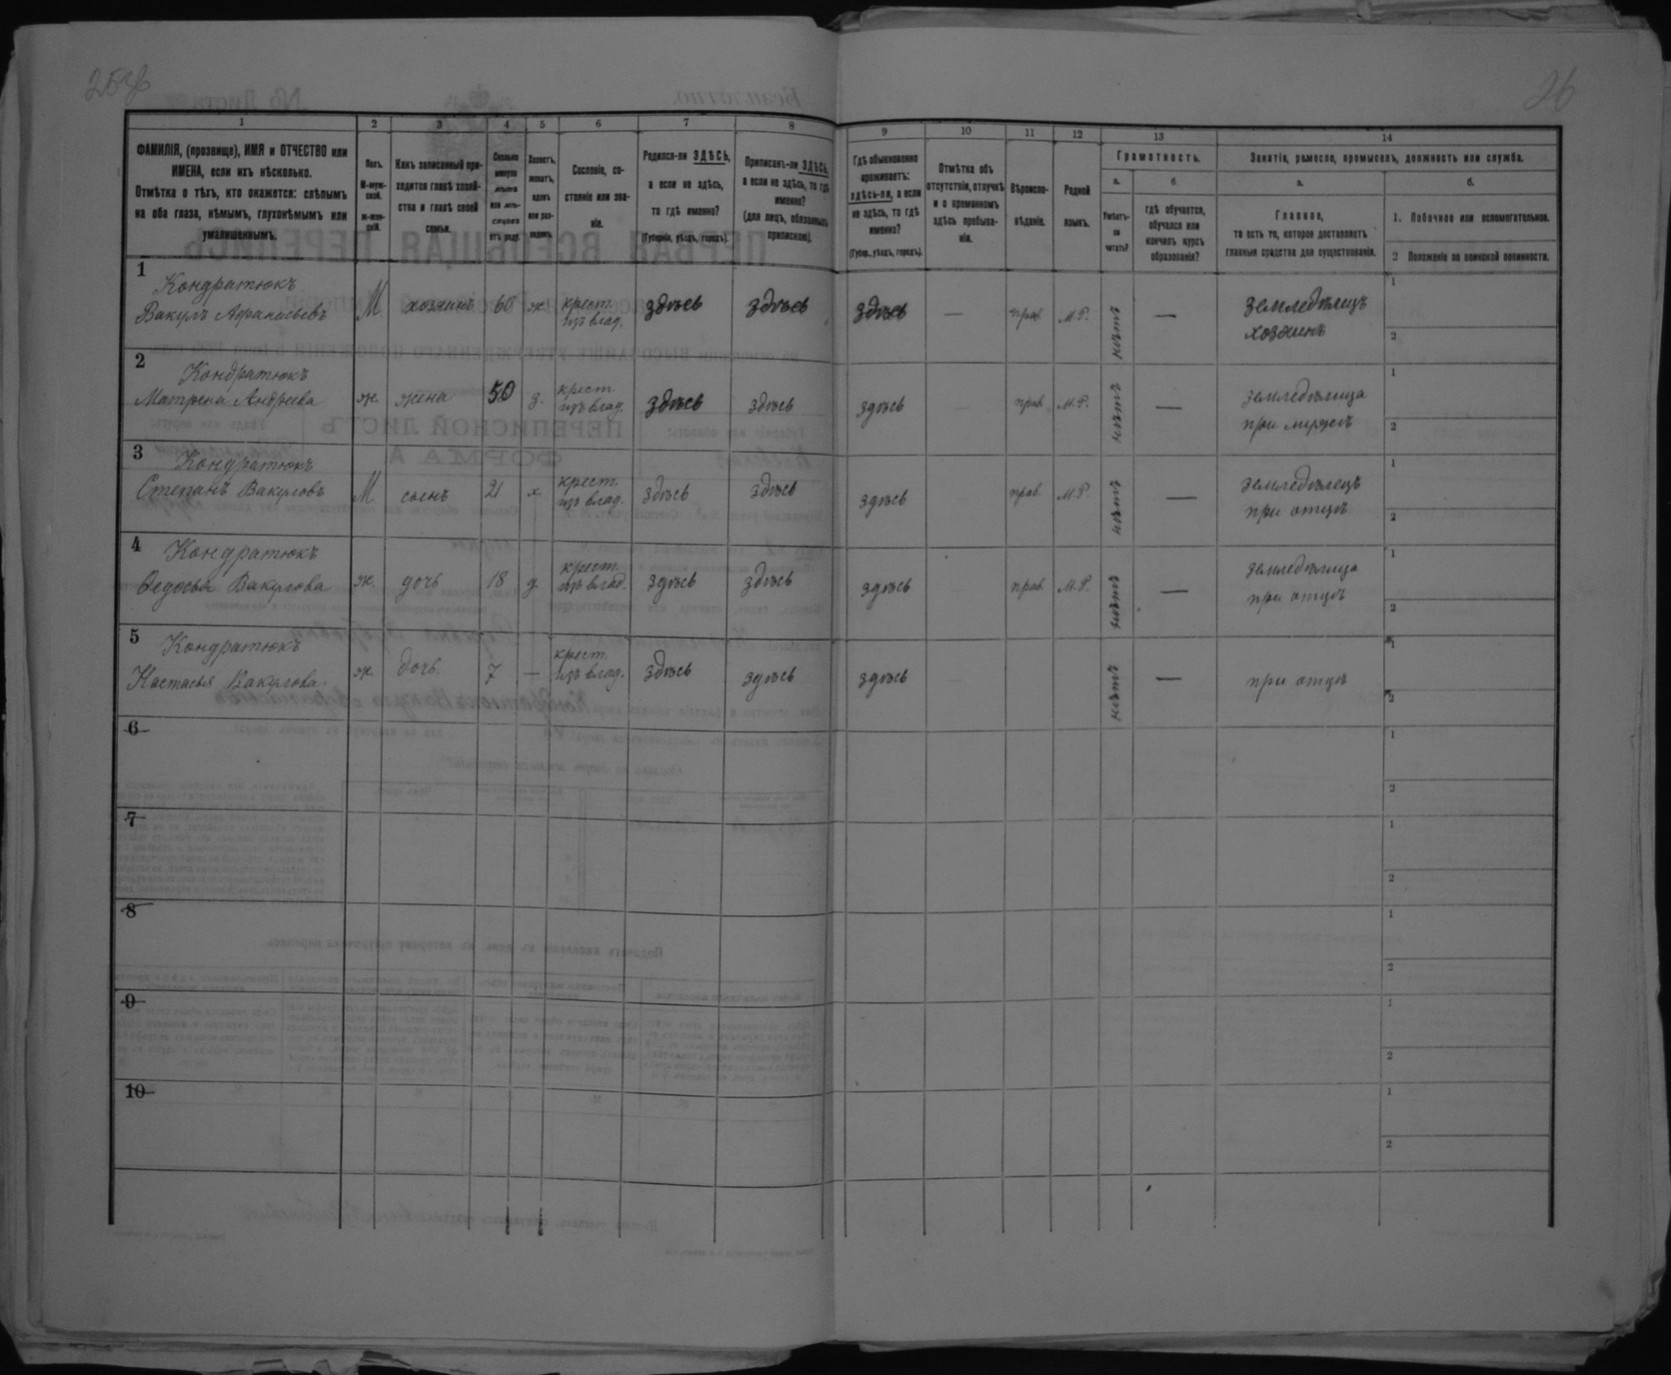 25об
26
1 2 3 4 5 6 7 8 9 10 11 12 13 14
ФАМИЛІЯ, (прозвище), ИМЯ и ОТЧЕСТВО или
ИМЕНА, если ихъ нѣсколько.
Отмѣтка о тѣхъ, кто окажется: слѣпымъ
на оба глаза, нѣмымъ, глухонѣмымъ или
умалишеннымъ.
Полъ.
М-муж-
ской.
ж-жен-
скій.
Какъ записанный при-
ходится главѣ хозяй-
ства и главѣ своей
семьи.
Сколько
минуло
лѣтъ
или мѣ-
сяцевъ
отъ роду.
Холостъ,
женатъ,
вдовъ
или раз-
веденъ.
Сословіе, со-
стояніе или зва-
ніе.
Родился-ли ЗДѢСЬ,
а если не здѣсь,
то гдѣ именно?
(Губернія, уѣздъ, городъ).
Приписанъ-ли ЗДѢСЬ,
а если не здѣсь, то гдѣ
именно?
(для лицъ, обязанныхъ
припиской).
Гдѣ обыкновенно
проживаетъ:
здѣсь-ли, а если
не здѣсь, то гдѣ
именно?
(Губер., уѣздъ, городъ).
Отмѣтка объ
отсутствіи, отлучкѣ
и о временномъ
здѣсь пребыва-
ніи.
Вѣроиспо-
вѣданіе.
Родной
языкъ.
Грамотность.
а.
Умѣетъ-
ли
читать?
б.
гдѣ обучается,
обучался или
кончилъ курсъ
образованія?
Занятіе, ремесло, промыселъ, должность или служба.
а.
Главное,
то есть то, которое доставляетъ
главныя средства для существованія.
б.
1. Побочное или вспомогательное.
2 Положеніе по воинской повинности.
1
Кондратюкъ
Вакулъ Афанасьевъ М хозяинъ 60 ж. крест. изъ влад. здѣсь здѣсь здѣсь — прав. М.Р. нѣтъ — земледѣлецъ
хозяинъ
1
2
2
Кондратюкъ
Матрена Андреева ж. жена 50 з. крест. изъ влад. здѣсь здѣсь здѣсь прав. М.Р. нѣтъ — земледѣлица
при мужѣ
1
2
3
Кондратюкъ
Степанъ Вакуловъ М сынъ 21 х крест. изъ влад. здѣсь здѣсь здѣсь прав. М.Р. нѣтъ — земледѣлецъ
при отцѣ
1
2
4
Кондратюкъ
Ѳедосья Вакулова ж. дочь 18 д. крест. изъ влад. здѣсь здѣсь здѣсь прав. М.Р. нѣтъ — земледѣлица
при отцѣ
1
2
5
Кондратюкъ
Настасья Вакулова. ж. дочь 7 — крест. изъ влад. здѣсь здѣсь здѣсь нѣтъ — при отцѣ
1
2
6
1
2
7
1
2
8
1
2
9
1
2
10
1
2